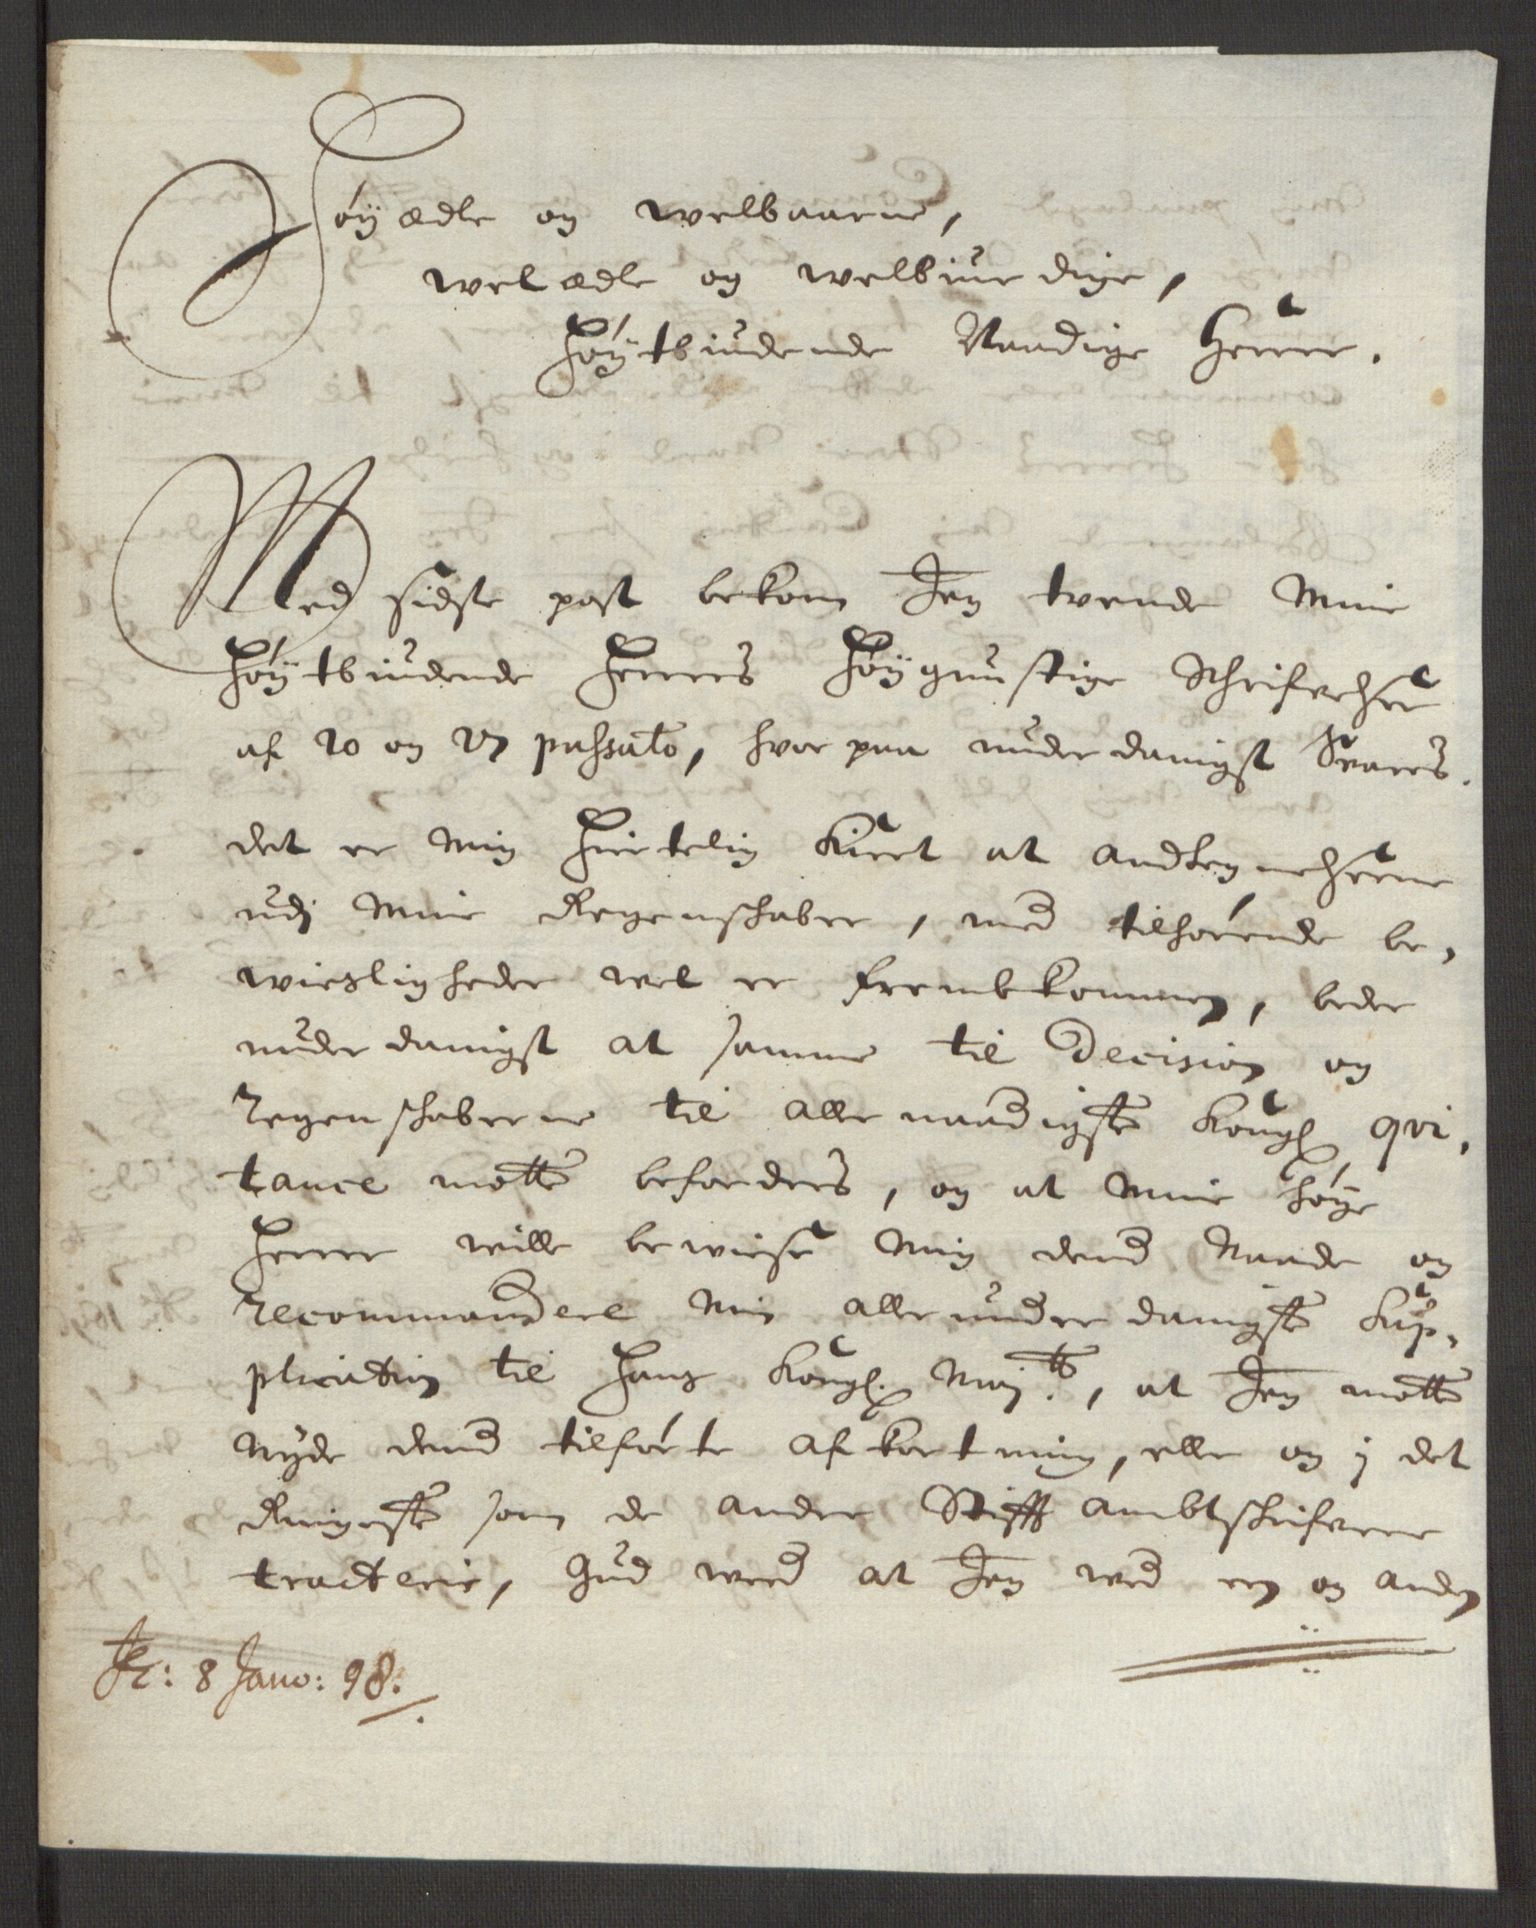 Höÿædle og welbaarne,
welædle og welbiurdige,
Höÿtbiudende Naadige Herrer.
Med sidste post bekom Jeg tvende Mine
Höÿtbiudende Herrers Höÿgunstige Schrifvelser
af 20 og 27 passato, hvor paa underdanigst Svares.
det er mig Hiertelig kiert at andteg nelserne
udj Mine Regenschaber, med tilhörende be,
wiesligheder vel er frembkommen, beder
underdanigst at samme til Decision og
Regenschaberne til allernaadigste Kongl qvi,
tance motte befordres, og at Mine Höÿe
Herrer wille bewiise Mig dend Naade og
Recommandere Min allerunderdanigste Sup,
plication til Hans Kongl. Maj:tt, at Jeg motte
Nÿde dend tilförte afkortning, eller og j det
Ringeste som de andre Stifft ambtschrifvere
tracteris, Gud weed at Jeg wed een og anden
Pr: 8 Janv: 98.